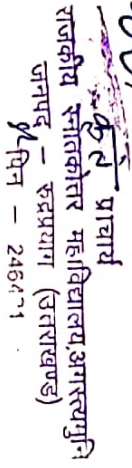 कृते प्राचार्य
राजकीय स्नातकोत्तर महाविद्यालय,अगस्त्यमुनि
जनपद - रूद्रप्रयाग (उत्तराखण्ड)
पिन -